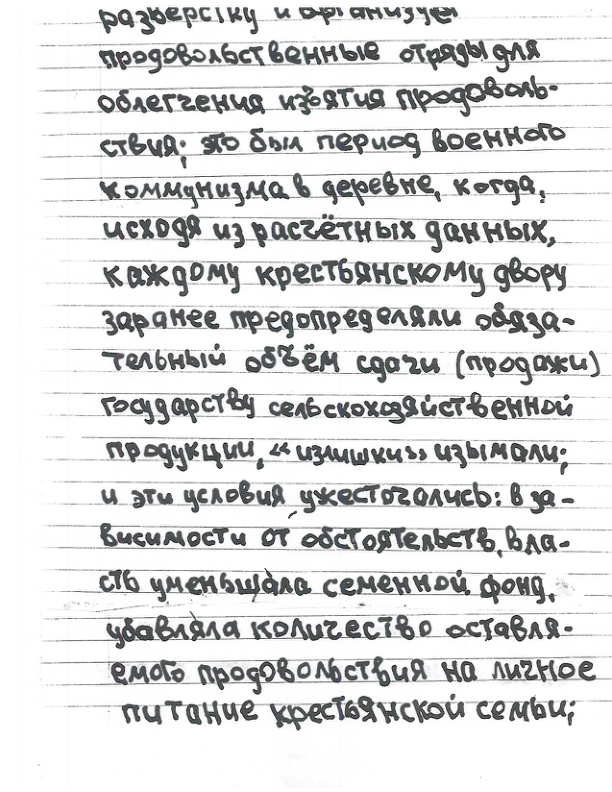 развёрстку и организует
продовольственные отряды для
облегчения изъятия продоволь-
ствия; это был период военного
коммунизма в деревне, когда,
исходя из расчётных данных,
каждому крестьянскому двору
заранее предопределяли обяза-
тельный объём сдачи (продажи)
государству сельскохозяйственной
продукции, «излишки» изымали;
и эти условия ужесточались: в за-
висимости от обстоятельств, вла-
сть уменьшала семенной фонд,
убавляла количество оставля-
емого продовольствия на личное
питание крестьянской семьи;